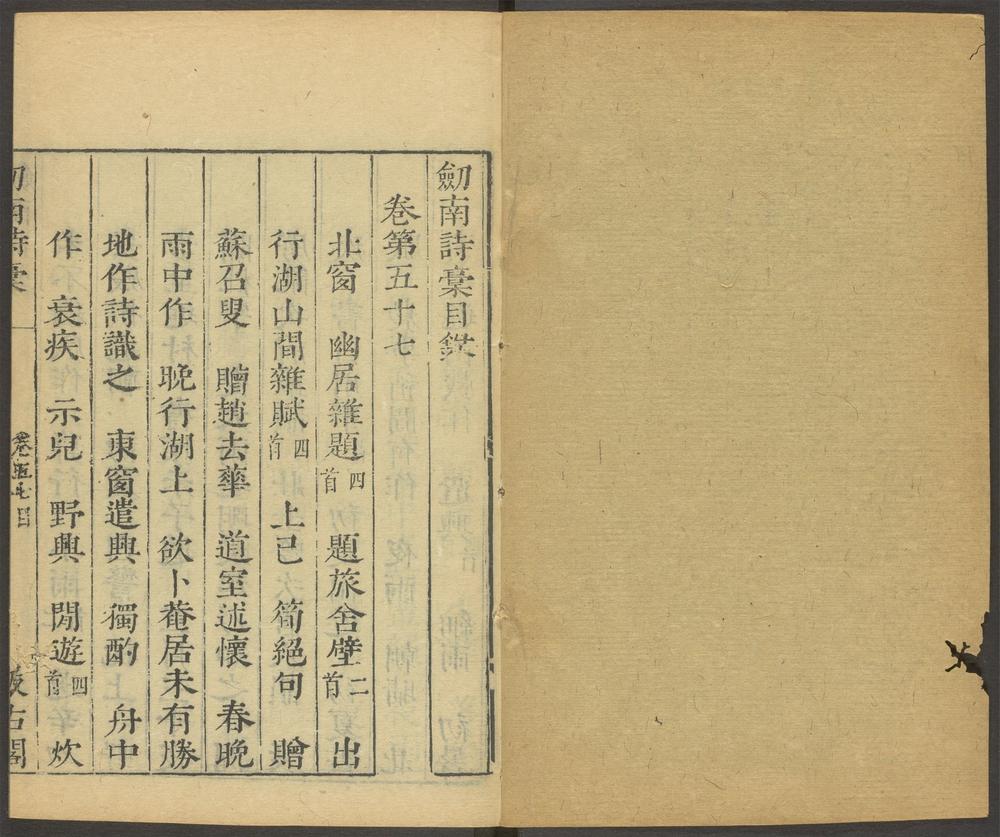 劒南詩槀目錄
卷第五十七
北窗　幽居雜題四首　題旅舍壁二首　出
行湖山間雜賦四首　上巳　筍絕句　贈
蘇召叟　贈趙去華　道室述懷　春晚
雨中作　晚行湖上　欲卜菴居未有勝
地作詩識之　東窗遣興　獨酌　舟中
作　衰疾　示兒　野興　閒遊四首　炊
劒南詩槀　卷五七目　汲古閣